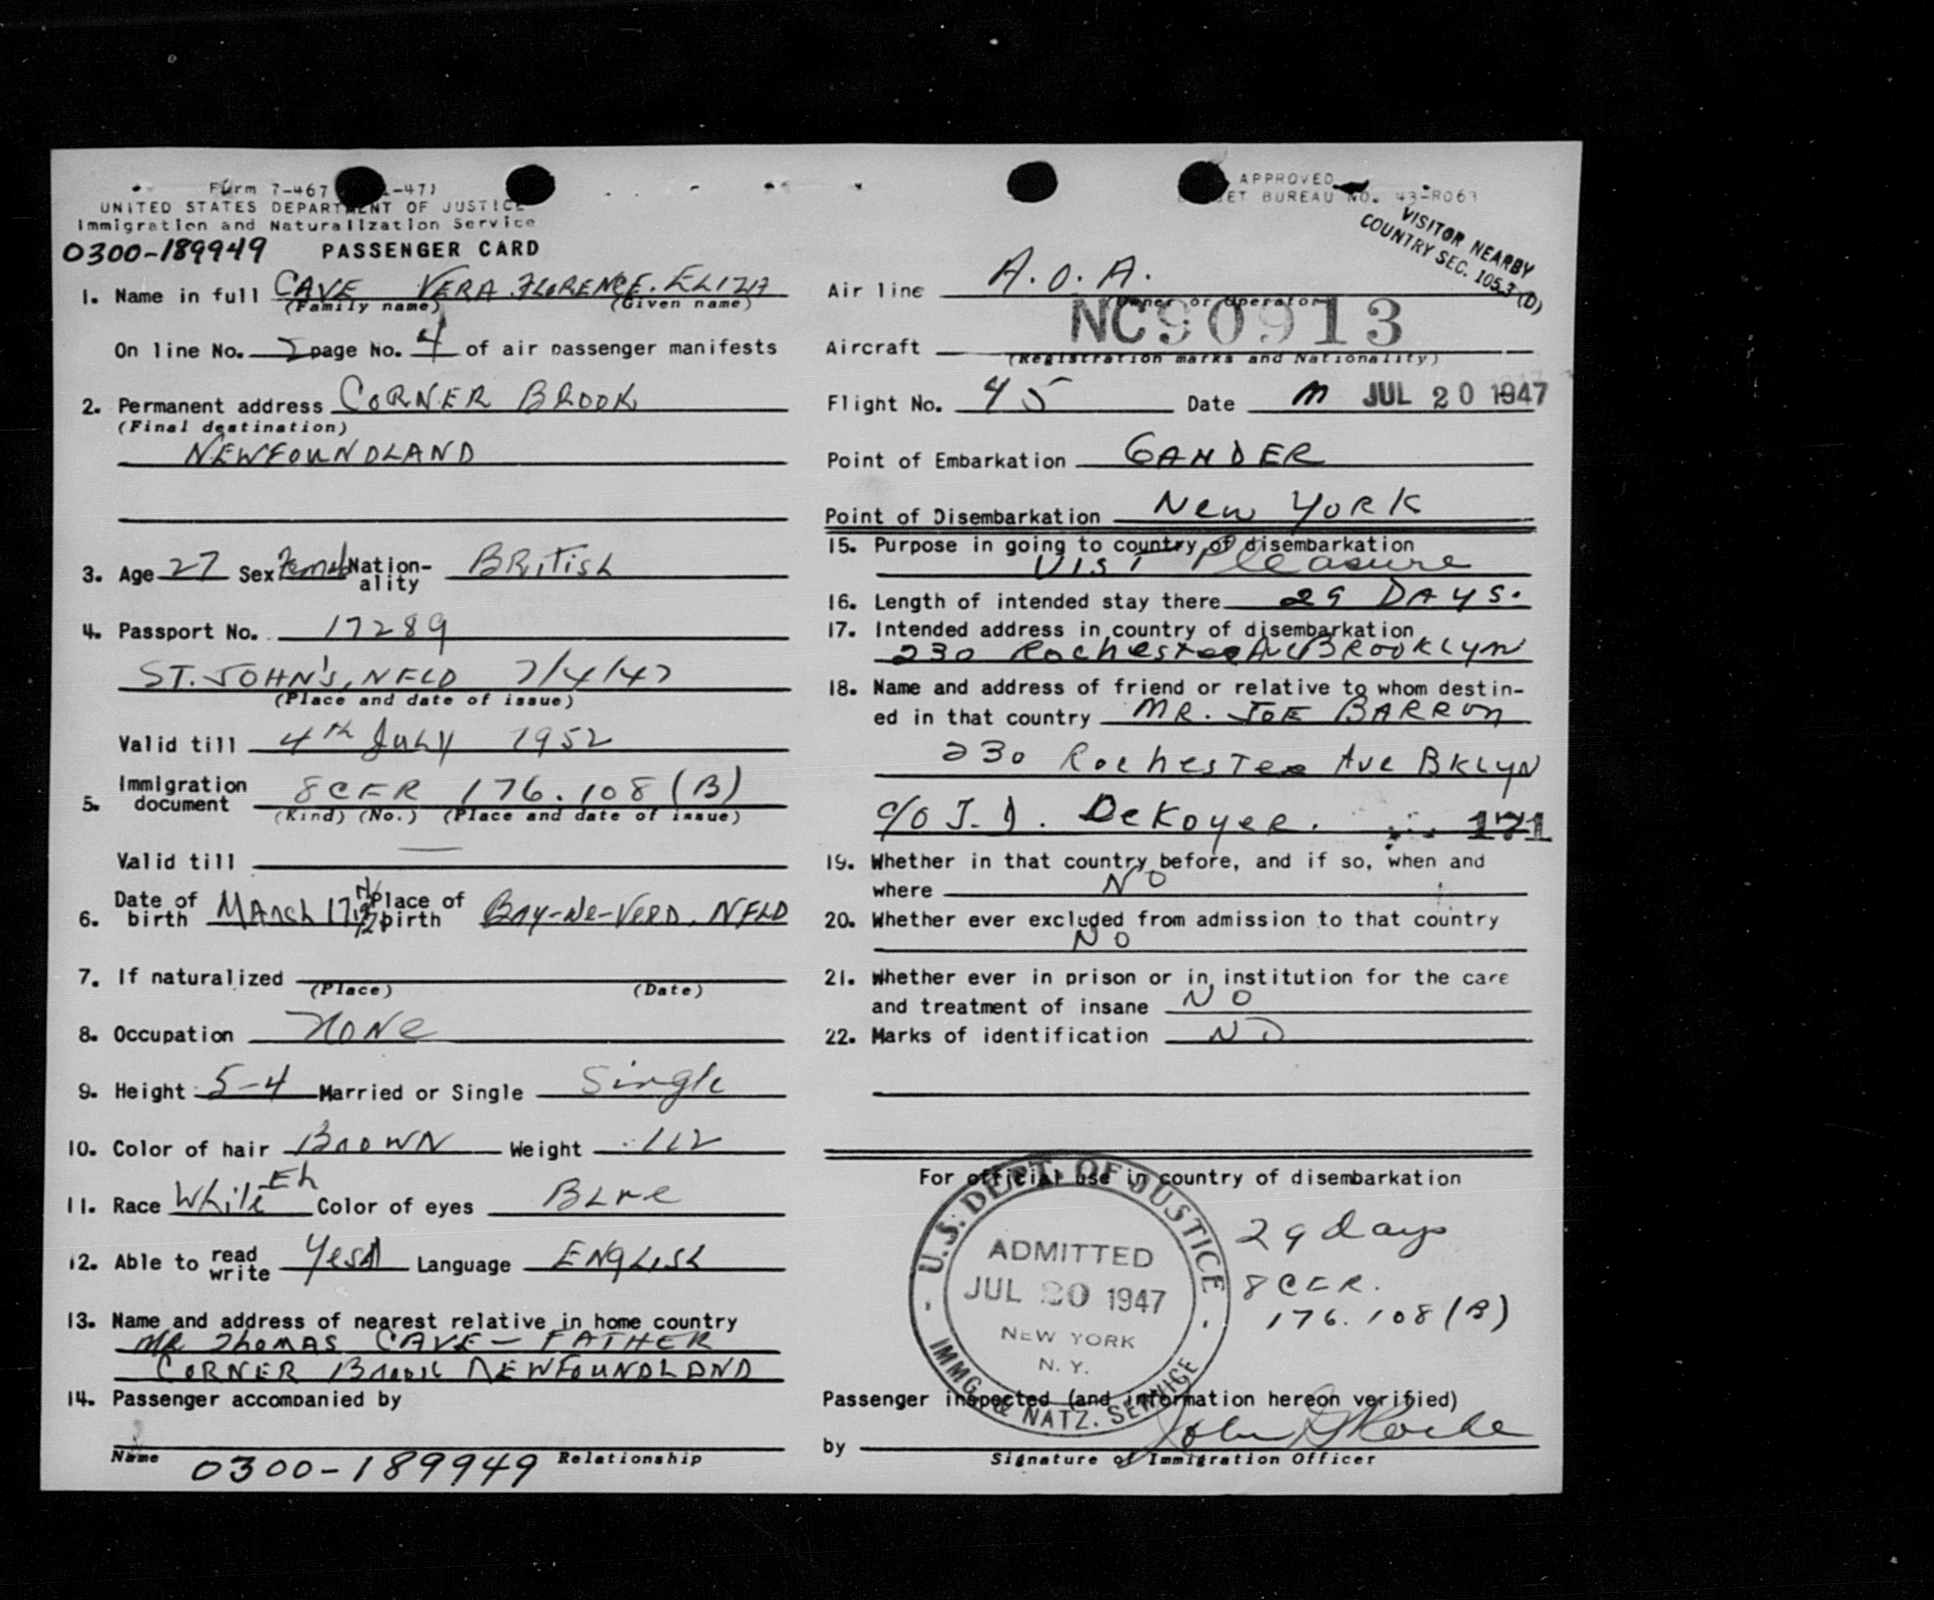 Form 7-467
UNITED STATES DEPARTMENT OF JUSTICE
Immigration and Naturalization Service
0300-189949 PASSENGER CARD
1. Name in full CAVE VERA FLORENCE. ELIZA
(Family name) (Given name)
On line No. 2 page No. 4 of air passenger manifests
2. Permanent address CORNER BROOK
(Final destination)
NEWFOUNDLAND
3. Age 27 Sex Female Nationality BRitish
4. Passport No. 17289
ST. JOHN'S, NFLD 7/4/47
(Place and date of issue)
Valid till 4th July 1952
5. Immigration document 8 CFR 176.108 (B)
(Kind) (No.) (Place and date of issue)
Valid till
6. Date of birth MARch 17 Place of birth BAY-de-VERD. NFLD
7. If naturalized
(Place) (Date)
8. Occupation NONe
9. Height 5-4 Married or Single Single
10. Color of hair BROWN Weight 112
11. Race White Eh Color of eyes BLue
12. Able to read write Yes Language ENGLISh
13. Name and address of nearest relative in home country
MR ThOMAS CAVE - FATHER
CORNER BROOK NEWFOUNDLAND
14. Passenger accompanied by
Name Relationship
0300-189949
APPROVED
BUREAU NO. 43-R063
VISITOR NEARBY
COUNTRY SEC. 105.3 (D)
Air line A.O.A.
(Owner or Operator)
NC90913
Aircraft
(Registration marks and Nationality)
Flight No. 45 Date M JUL 20 1947
Point of Embarkation GANDER
Point of Disembarkation New YORK
15. Purpose in going to country of disembarkation
VIST Pleasure
16. Length of intended stay there 29 DAYS.
17. Intended address in country of disembarkation
230 Rochester Ave BROOKLYN
18. Name and address of friend or relative to whom destin-
ed in that country MR. JOE BARRON
230 Rochester Ave BKLYN
c/o J. J. DeKoyer. 171
19. Whether in that country before, and if so, when and
where NO
20. Whether ever excluded from admission to that country
NO
21. Whether ever in prison or in institution for the care
and treatment of insane NO
22. Marks of identification NO
For official use in country of disembarkation
U.S. DEPT. OF JUSTICE
ADMITTED
JUL 20 1947
NEW YORK
N. Y.
IMMG. & NATZ. SERVICE
29 days
8 CFR.
176.108 (B)
Passenger inspected (and information hereon verified)
by
Signature of Immigration Officer